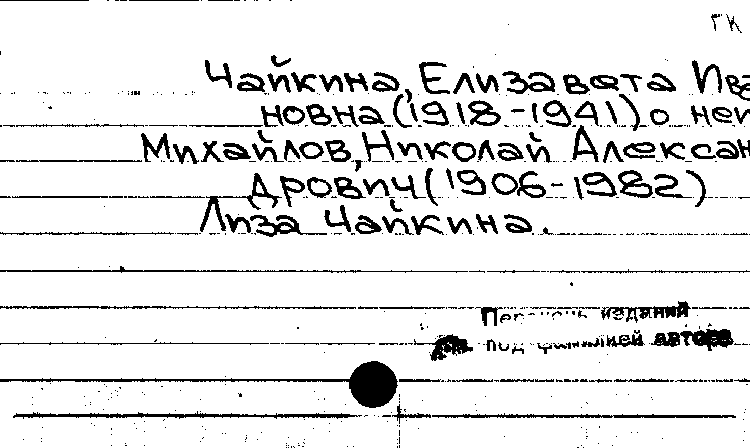 ГК
Чайкина, Елизавета Ива
новна (1918-1941) о ней
Михайлов, Николай Алексан
дрович (1906-1982)
Лиза Чайкина.
Перечень изданий
под фамилией автора